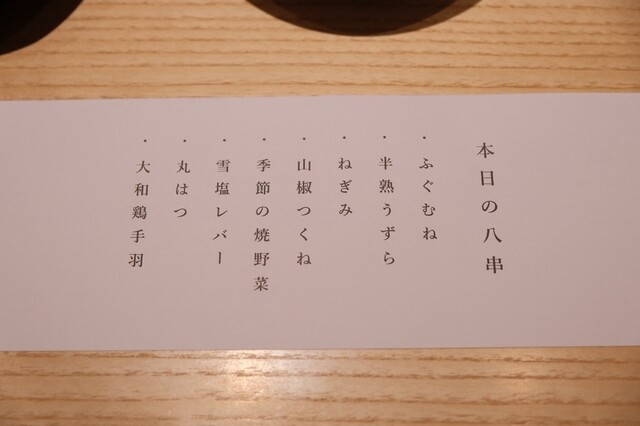 本日の八串
・ふぐむね
・半熟うずら
・ねぎみ
・山椒つくね
・季節の焼野菜
・雪塩レバー
・丸はつ
・大和鶏手羽